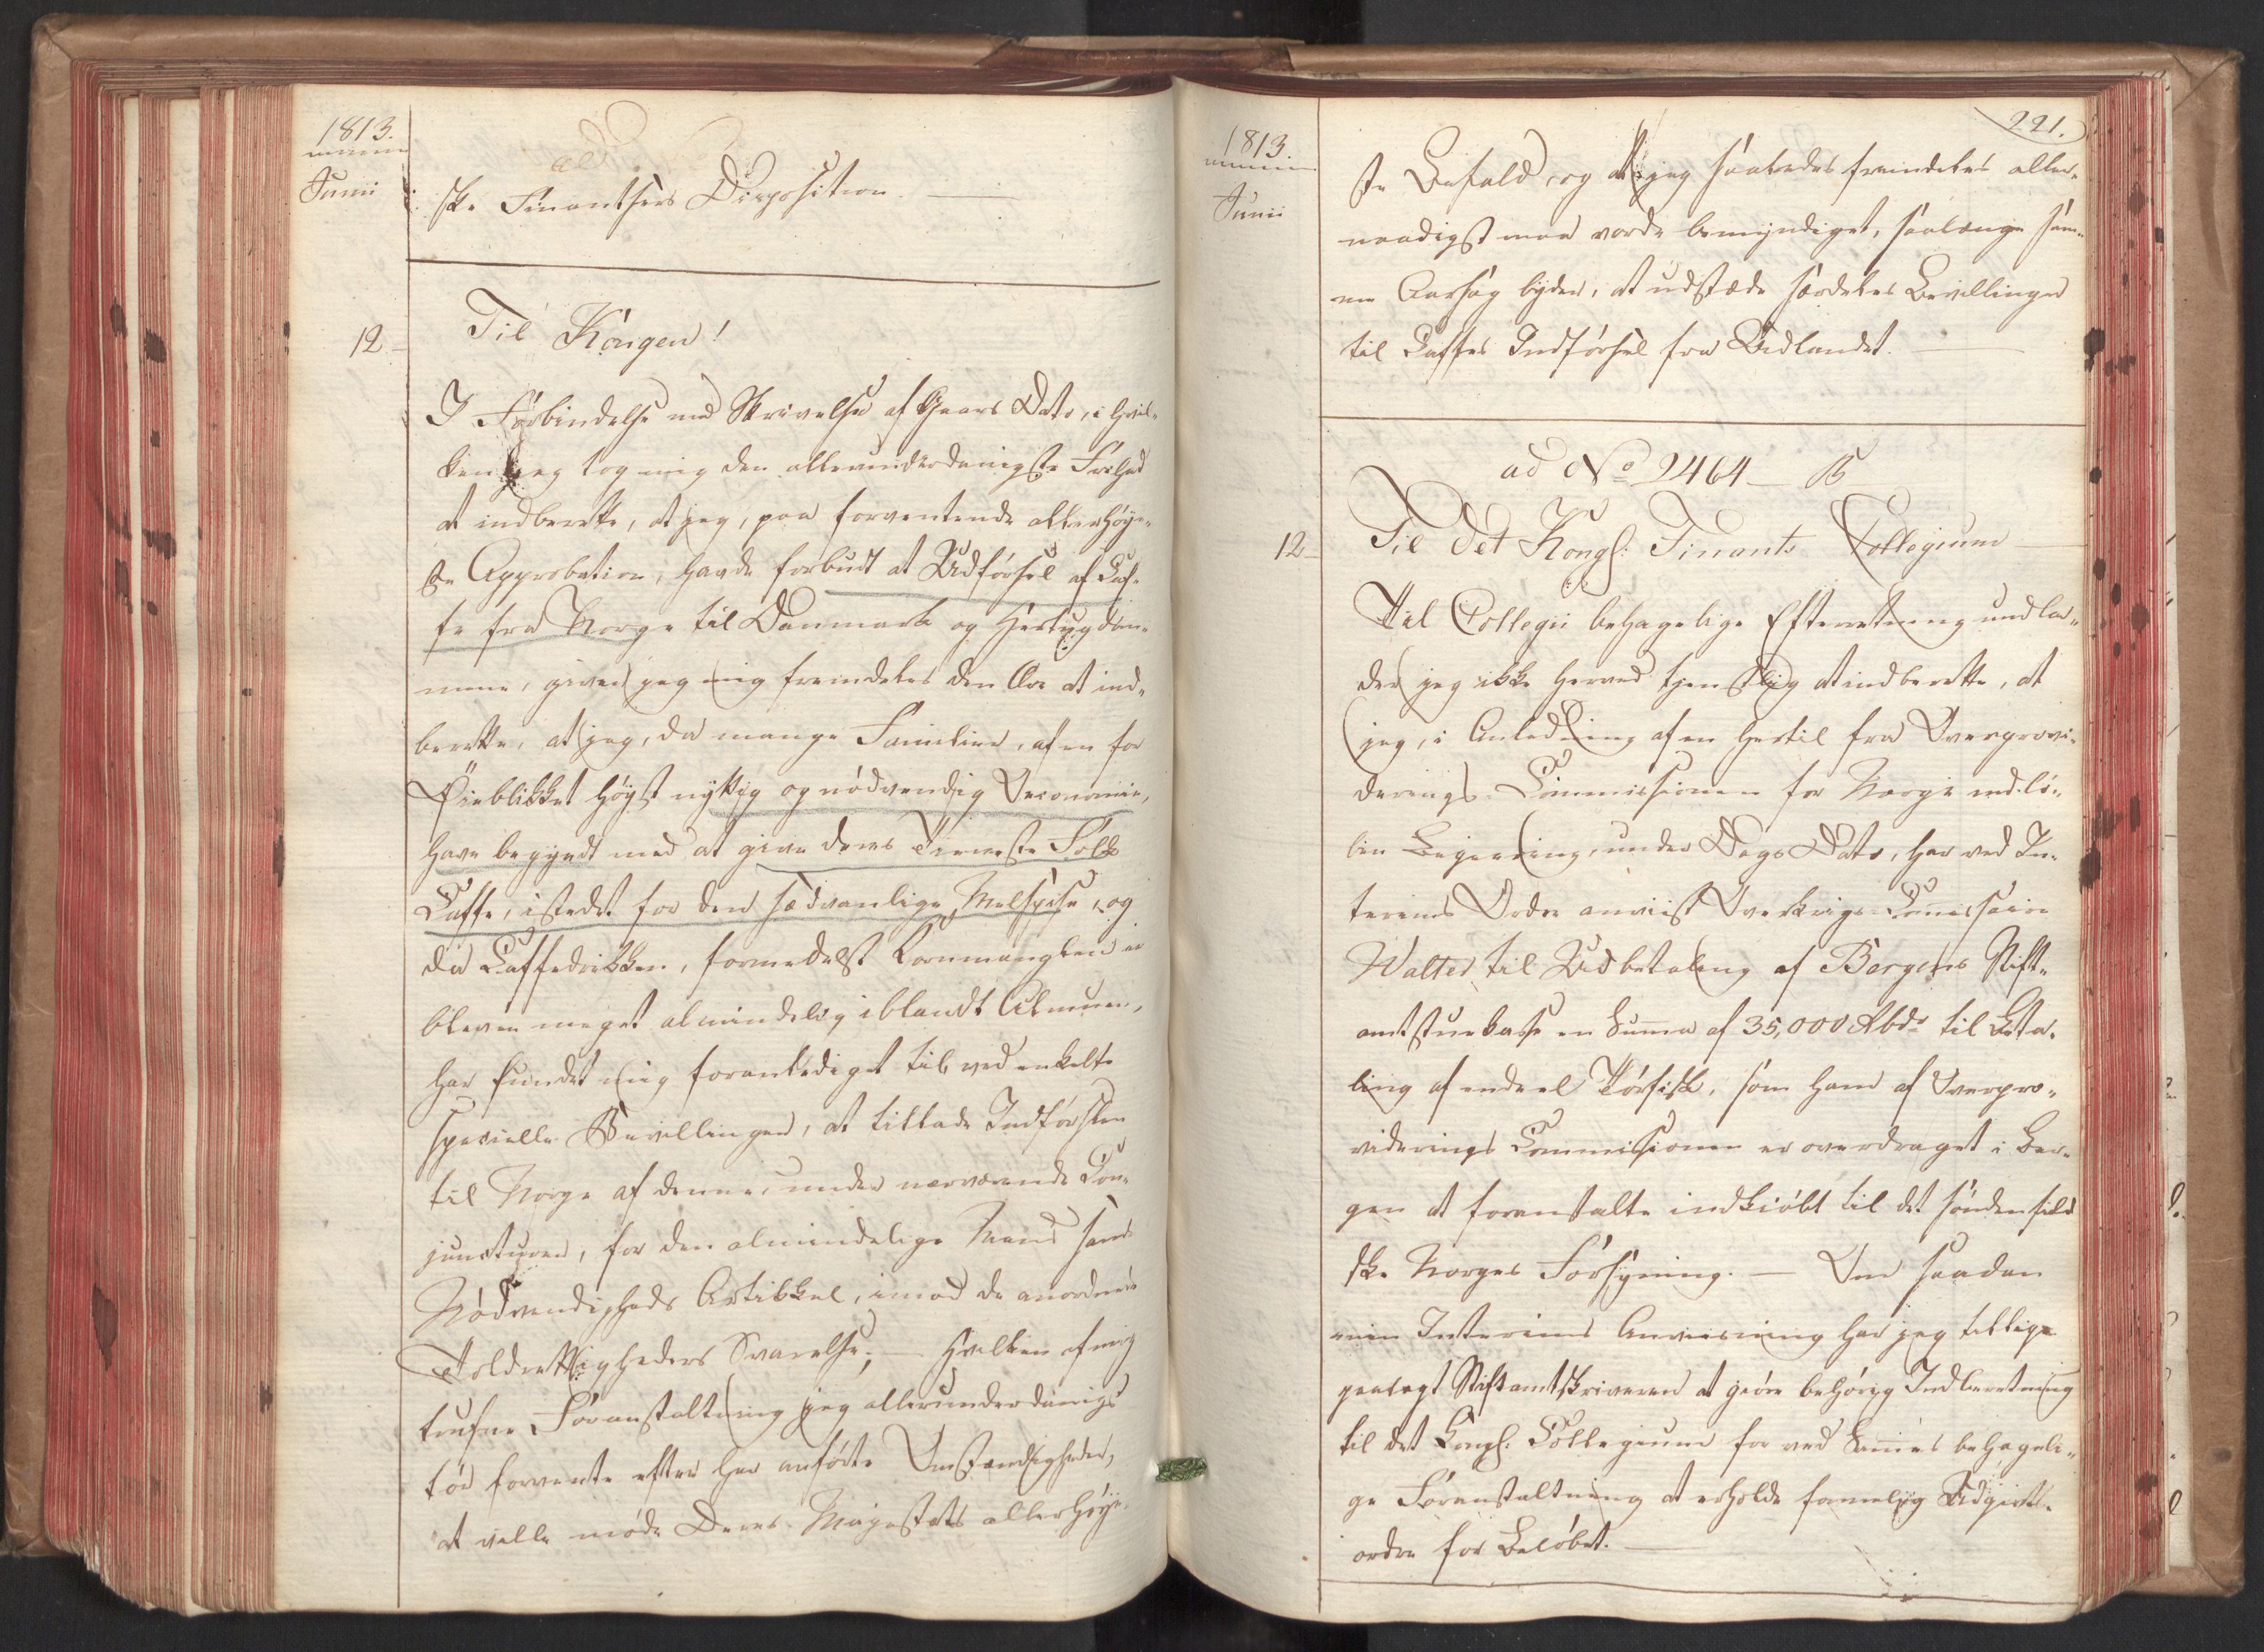 1813.
Junii
ske Finantsers Disposition
12
Til Kongen!
I Forbindelse med Skrivelse af Gaars Dato, i hvil-
ken jeg tog mig den allerunderdanigste Friehed
at indberette, at jeg, paa forventende allerhøye-
ste Approbation, havde forbudt at Udførsel af Caf-
fe fra Norge til Danmark og Hertugdøm-
mene, giver jeg mig fremdeles den Ære at ind-
berette, at jeg, da mange Familier, af en for
Øieblikket høyst nyttig og nødvendig Oeconomie,
have begyndt med at give deres Tieneste Folk
Caffe, istedet for den sædvanlige Melspise, og
da Caffedrikken, formedelst Kornmangelen er
bleven meget almindelig iblandt Almuen,
har fundet mig foranlediget til ved enkelte
specielle Bevillinger, at tillade Indførslen
til Norge af denne, under nærværende Con-
juncturer, for den almindelige Mand sande
Nødvendigheds Artikkel, imod de anordnede
Toldrettigheders Svarelse; — Hvilken af mig
trufne Foranstaltning jeg allerunderdanigst
tør forvente efter her anførte Omstændigheder,
at ville møde Deres Majestæts allerhøye-
1813.
Junii
221.
ste Bifald, og at jeg saaledes fremdeles aller-
naadigst maa vorde bemyndiget, saalænge sam-
me Aarsag byder, at udstæde særdeles Bevillinger
til Caffes Indførsel fra Udlandet.
ad No 2464 — B
12
Til Det Kongl: Finants Collegium
Til Collegii behagelige Efterretning undla-
der jeg ikke herved tjenstlig at indberette, at
jeg, i Anledning af en hertil fra Overprovi-
derings-Commissionen for Norge indlø-
ben Begiering, under Dags Dato, har ved In-
terims Ordre anviist Overkrigs-Commissaire
Walter til Udbetaling af Bergens Stift-
amtstuekasse en Summa af 35,000 Rbdr til Beta-
ling af endeel Tørfisk, som ham af Overpro-
viderings Commissionen er overdraget i Ber-
gen at foranstalte indkiøbt til det søndenfield-
ske Norges Forsyning. — Om saadan
min Interims Anviisning har jeg tillige
paalagt Stiftamtskriveren at giøre behørig Indberetning
til det Kongl. Collegium for ved Sammes behageli-
ge Foranstaltning at erholde formelig Udgivts-
ordre for Beløbet.